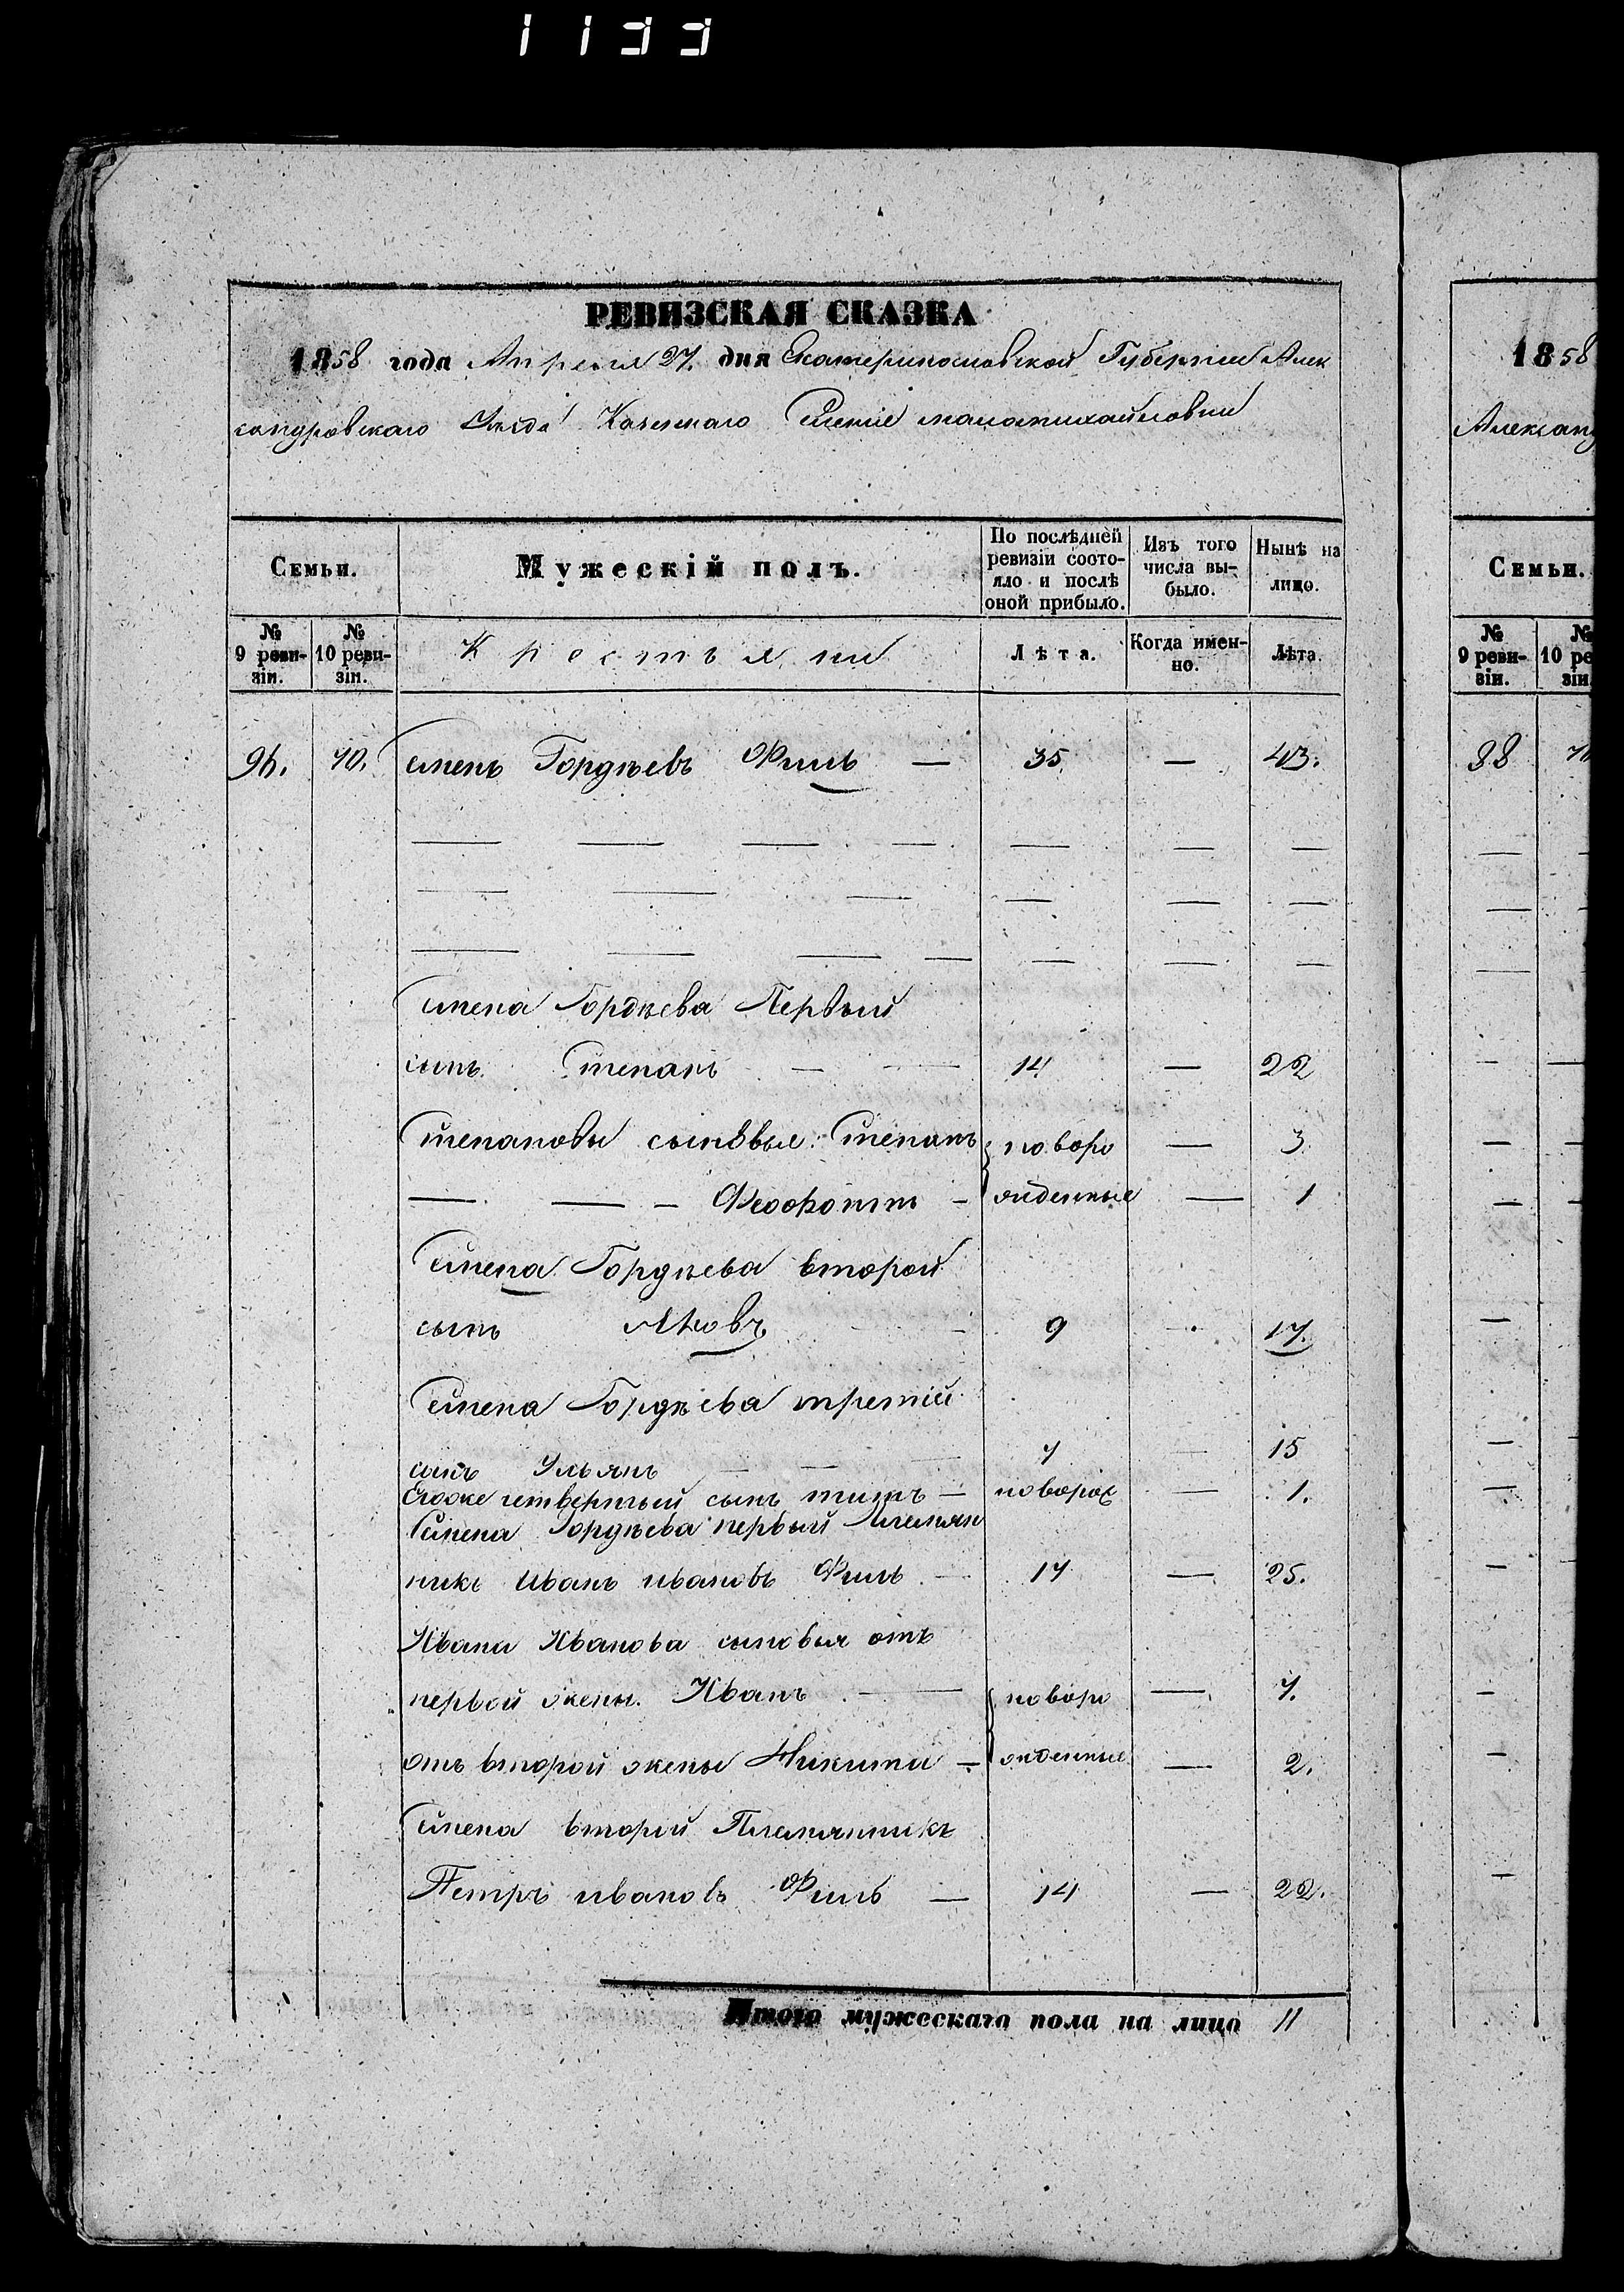 1133
РЕВИЗСКАЯ СКАЗКА
1858 года Апреля 27. дня Екатеринославской Губернии Алек
сандровскаго Уезда Казеннаго Селенія маломихайловки
Семьи.
Мужескій полъ.
По послѣдней ревизіи состояло и послѣ оной прибыло.
Изъ того числа выбыло.
Нынѣ на лицо.
№ 9 ревизіи.
№ 10 ревизіи.
Крестьяни
Лѣта.
Когда именно.
Лѣта.
70. Семенъ Гордѣевъ Филь — 35 — 43.
Семена Гордѣева Первый
сынъ Степанъ — — 14 — 22
Степановы сыновья: Степанъ новоро — 3
— — — Феофонтъ — жденные — 1
Семена Гордѣева второй
сынъ Яковъ — 9 — 17.
Семена Гордѣева третій
сынъ Ульянъ — — — 7 — 15
Егоже четвертый сынъ титъ — новорож — 1.
Семена Гордѣева первый Племян
никъ Иванъ ивановъ Филь — 17 — 25.
Ивана Иванова сыновья отъ
первой жены. Иванъ — — новоро — 7.
отъ второй жены Никита — жденные — 2.
Семена второй Племянникъ
Петръ ивановъ Филь — 14 — 22.
Итого мужескаго пола на лицо 11
1858
Александ
Семьи.
№ 9 ревизіи.
№ 10 ре
зіи
88